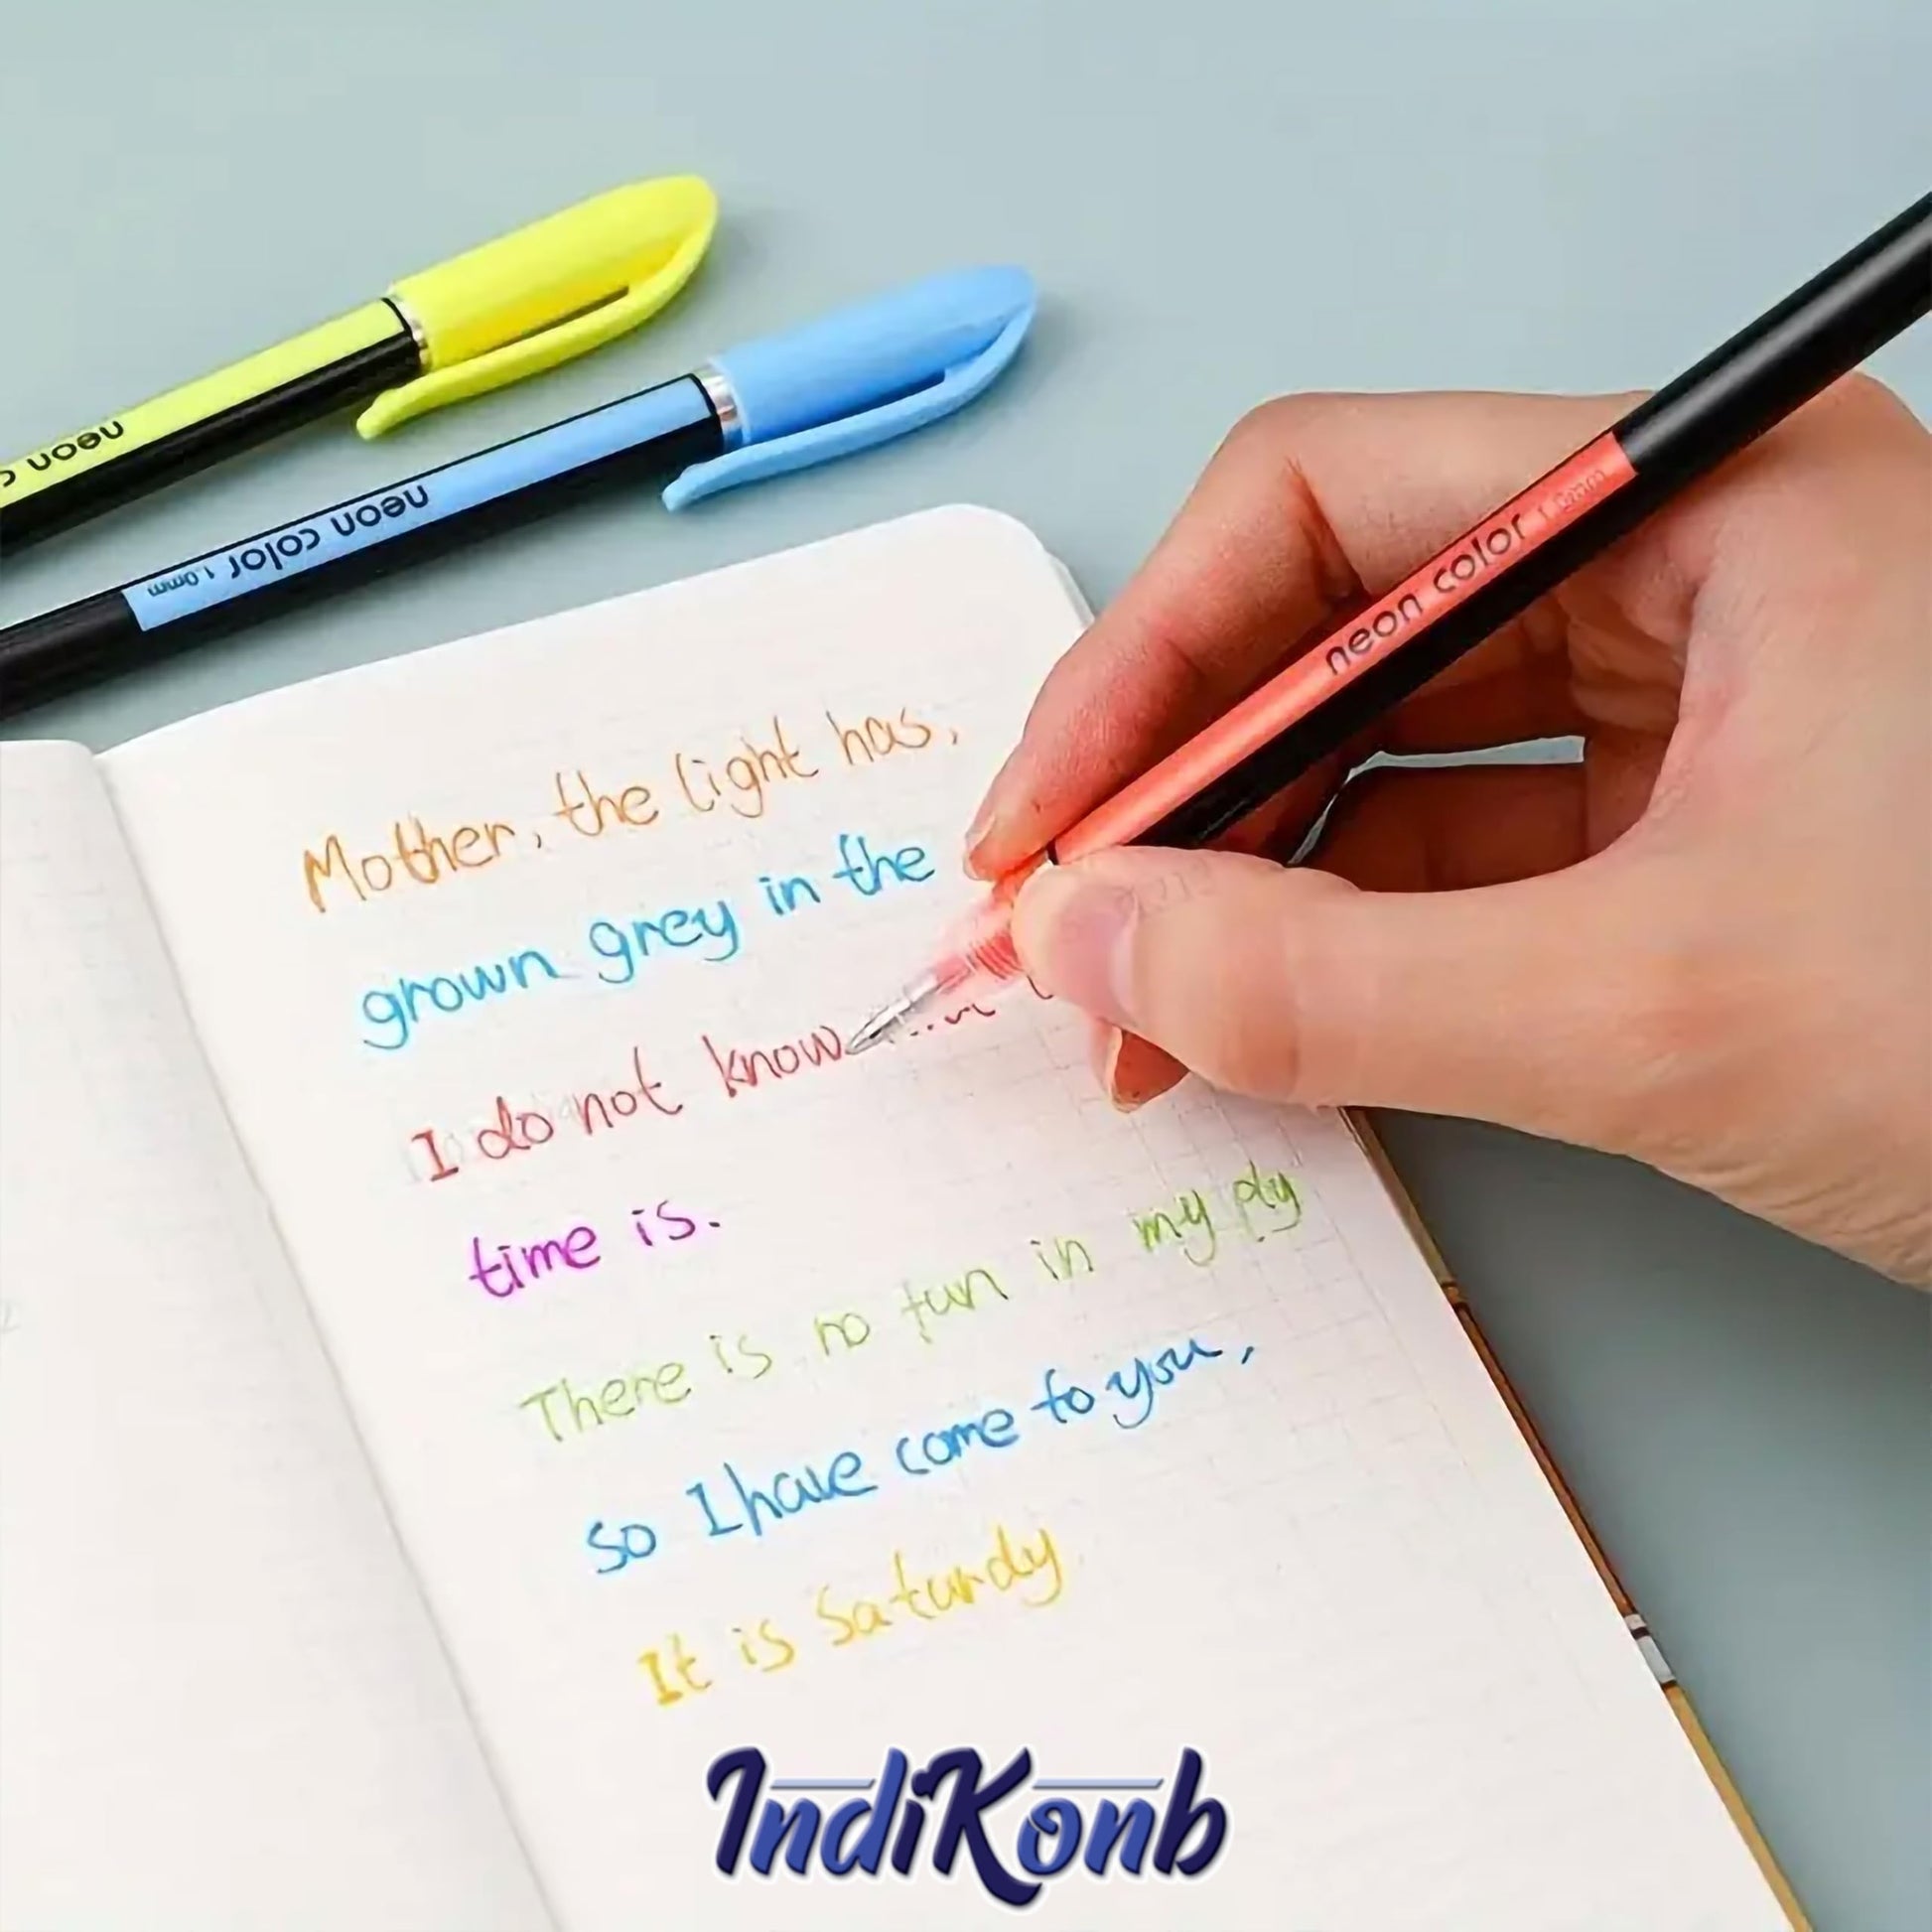 neon
neon color 1.0mm
neon color
Mother, the light has,
grown grey in the
I do not know
time is.
There is no fun in my dy
so I have come to you,
It is Saturdy
IndiKonb